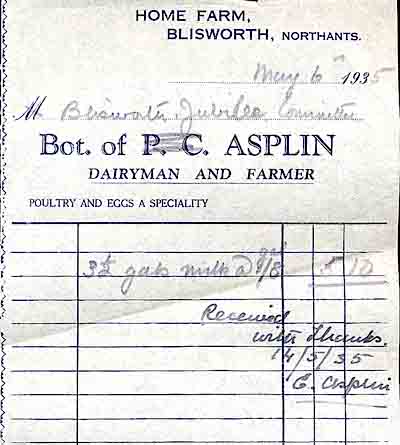 HOME FARM,
BLISWORTH, NORTHANTS.
May 6th 1935
M Blisworth Jubilee Committee
Bot. of P. C. ASPLIN
DAIRYMAN AND FARMER
POULTRY AND EGGS A SPECIALITY
3½ gals milk @ 1/8 5 10
Received
with Thanks
14/5/35
C. Asplin